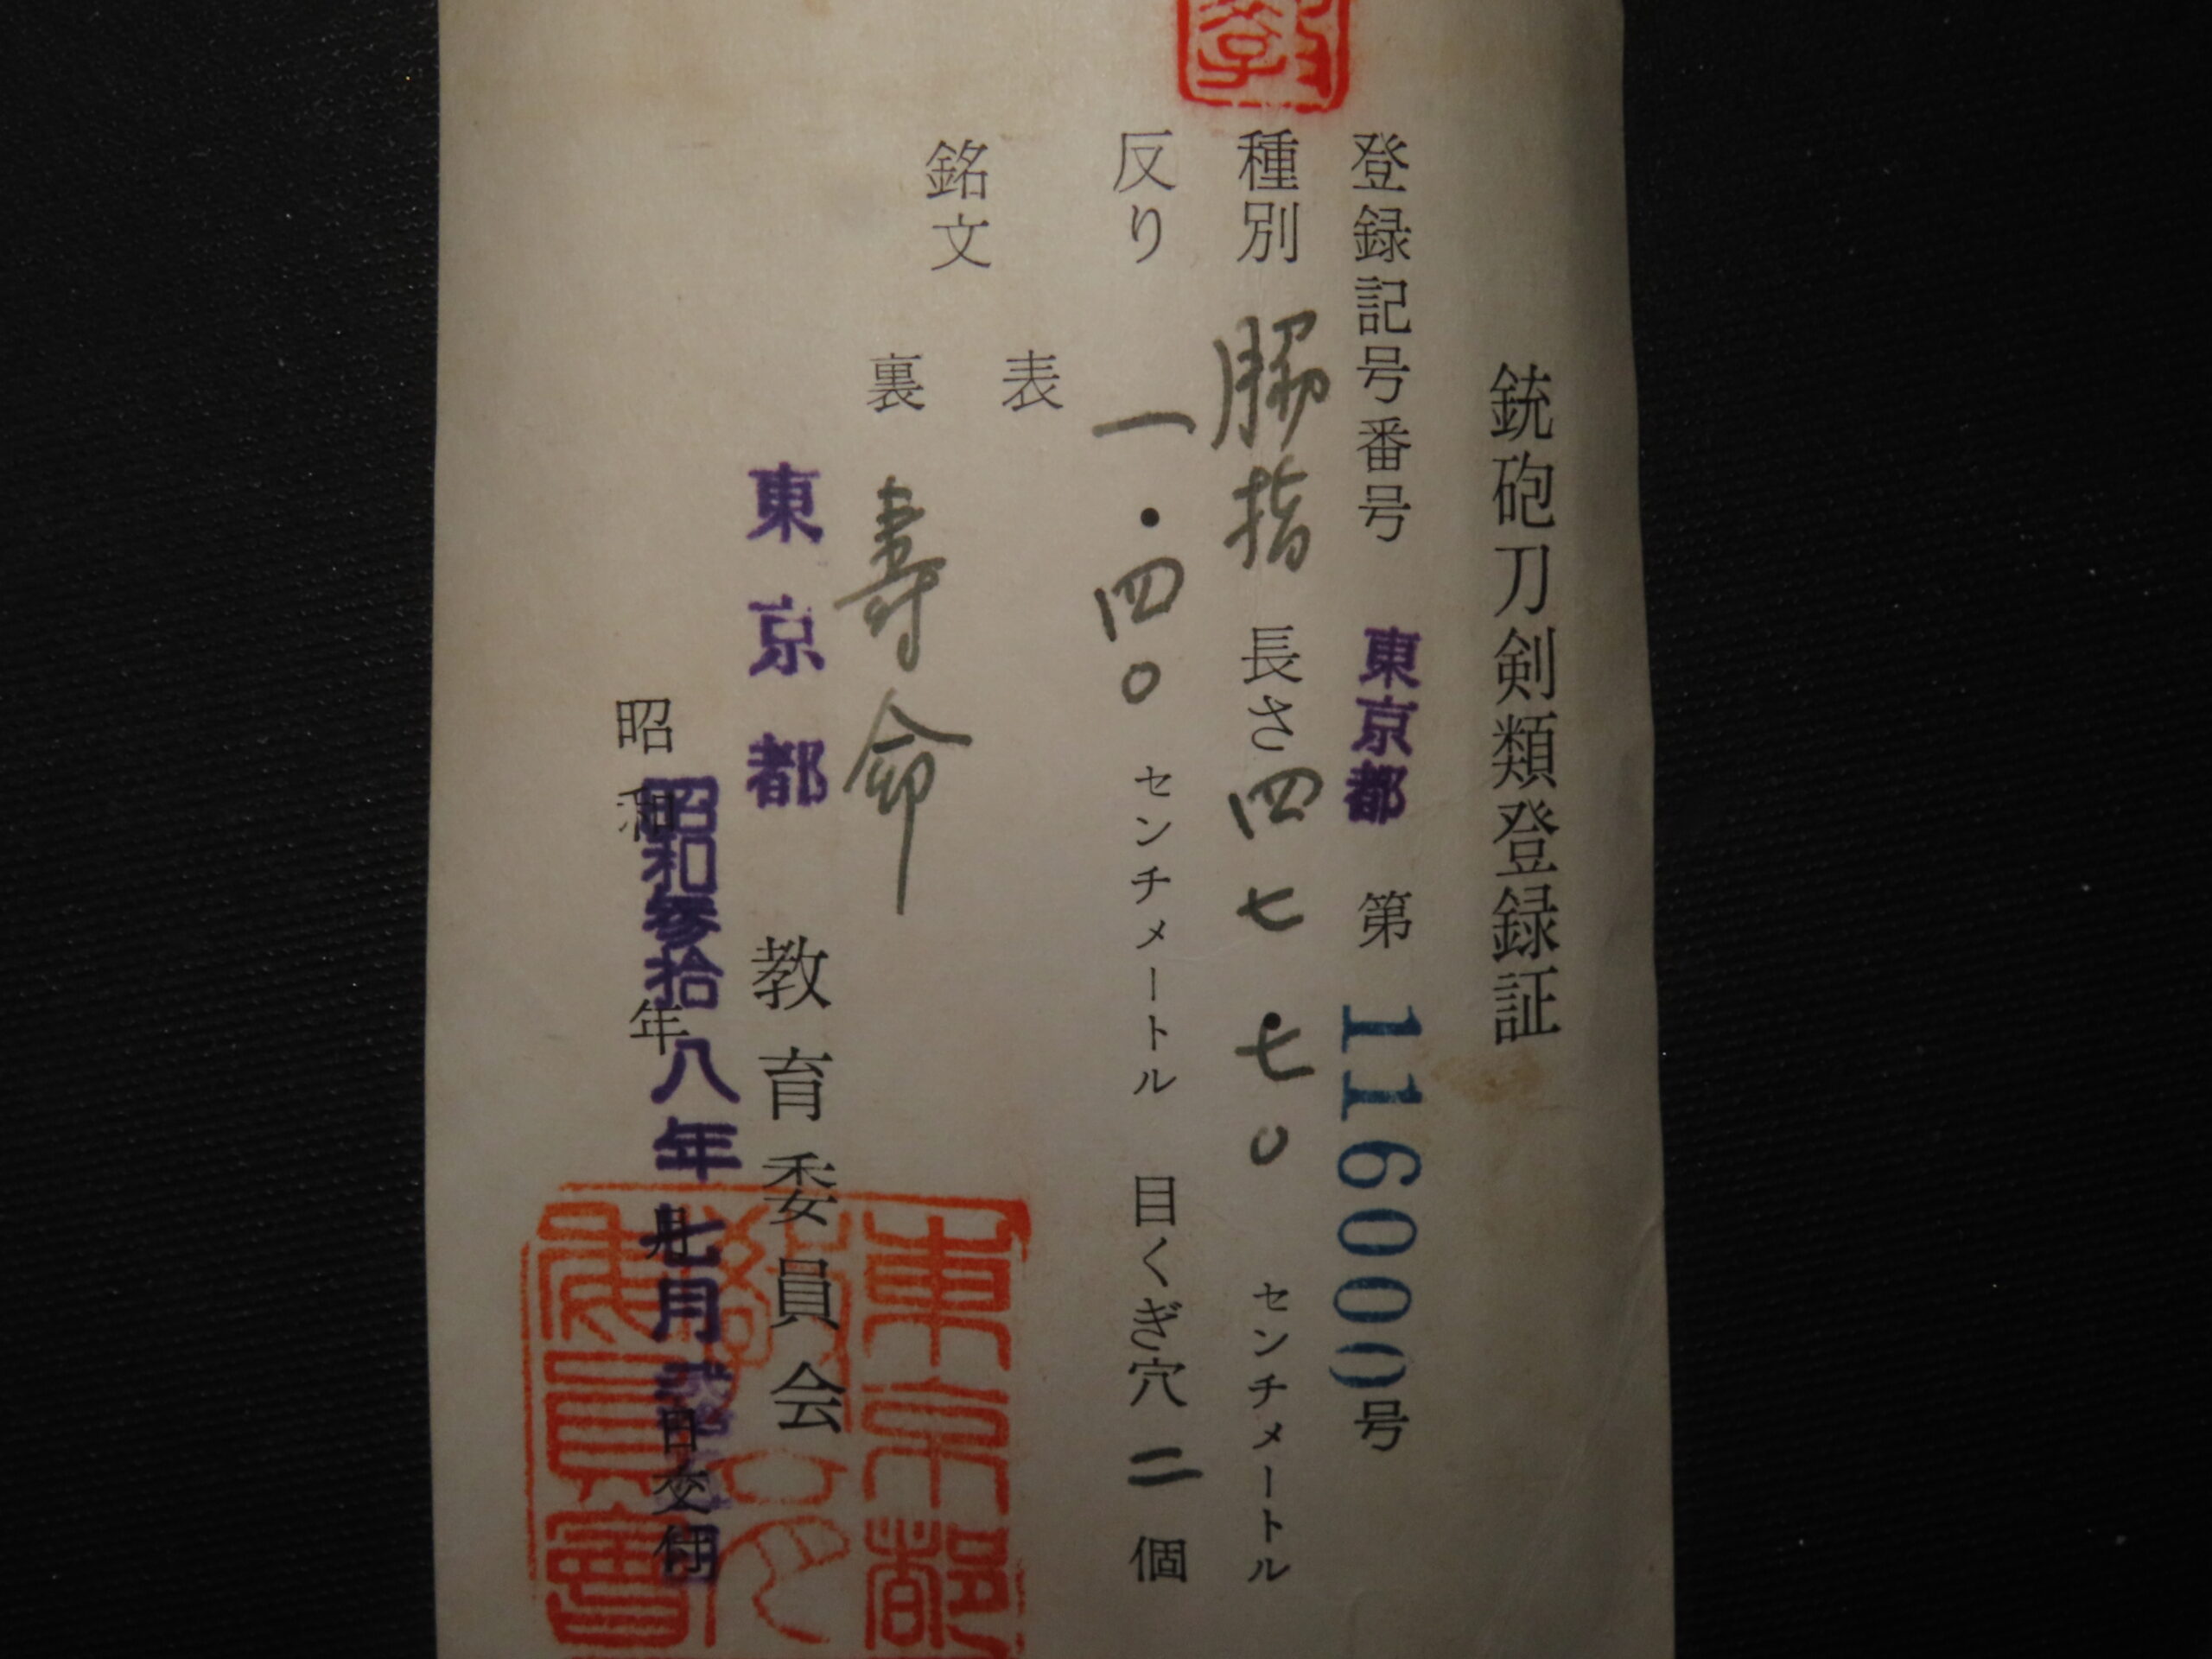 銃砲刀剣類登録証
登録記号番号 東京都 第 116000号
種別 脇指 長さ四七・七〇 センチメートル
反り 一・四〇 センチメートル 目くぎ穴 二 個
銘文
表
裏 寿命
東京都 教育委員会
昭和 年 月 日交付
昭和参拾八年七月
東京都
委員會